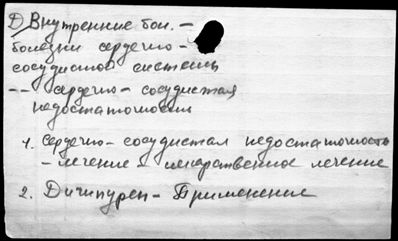 Д) Внутренние бол. -
болезни сердечно -
сосудистой системы
-- сердечно - сосудистая
недостаточность
1. Сердечно - сосудистая недостаточность
- лечение лекарственное лечение
2. Дигипурен - Применение